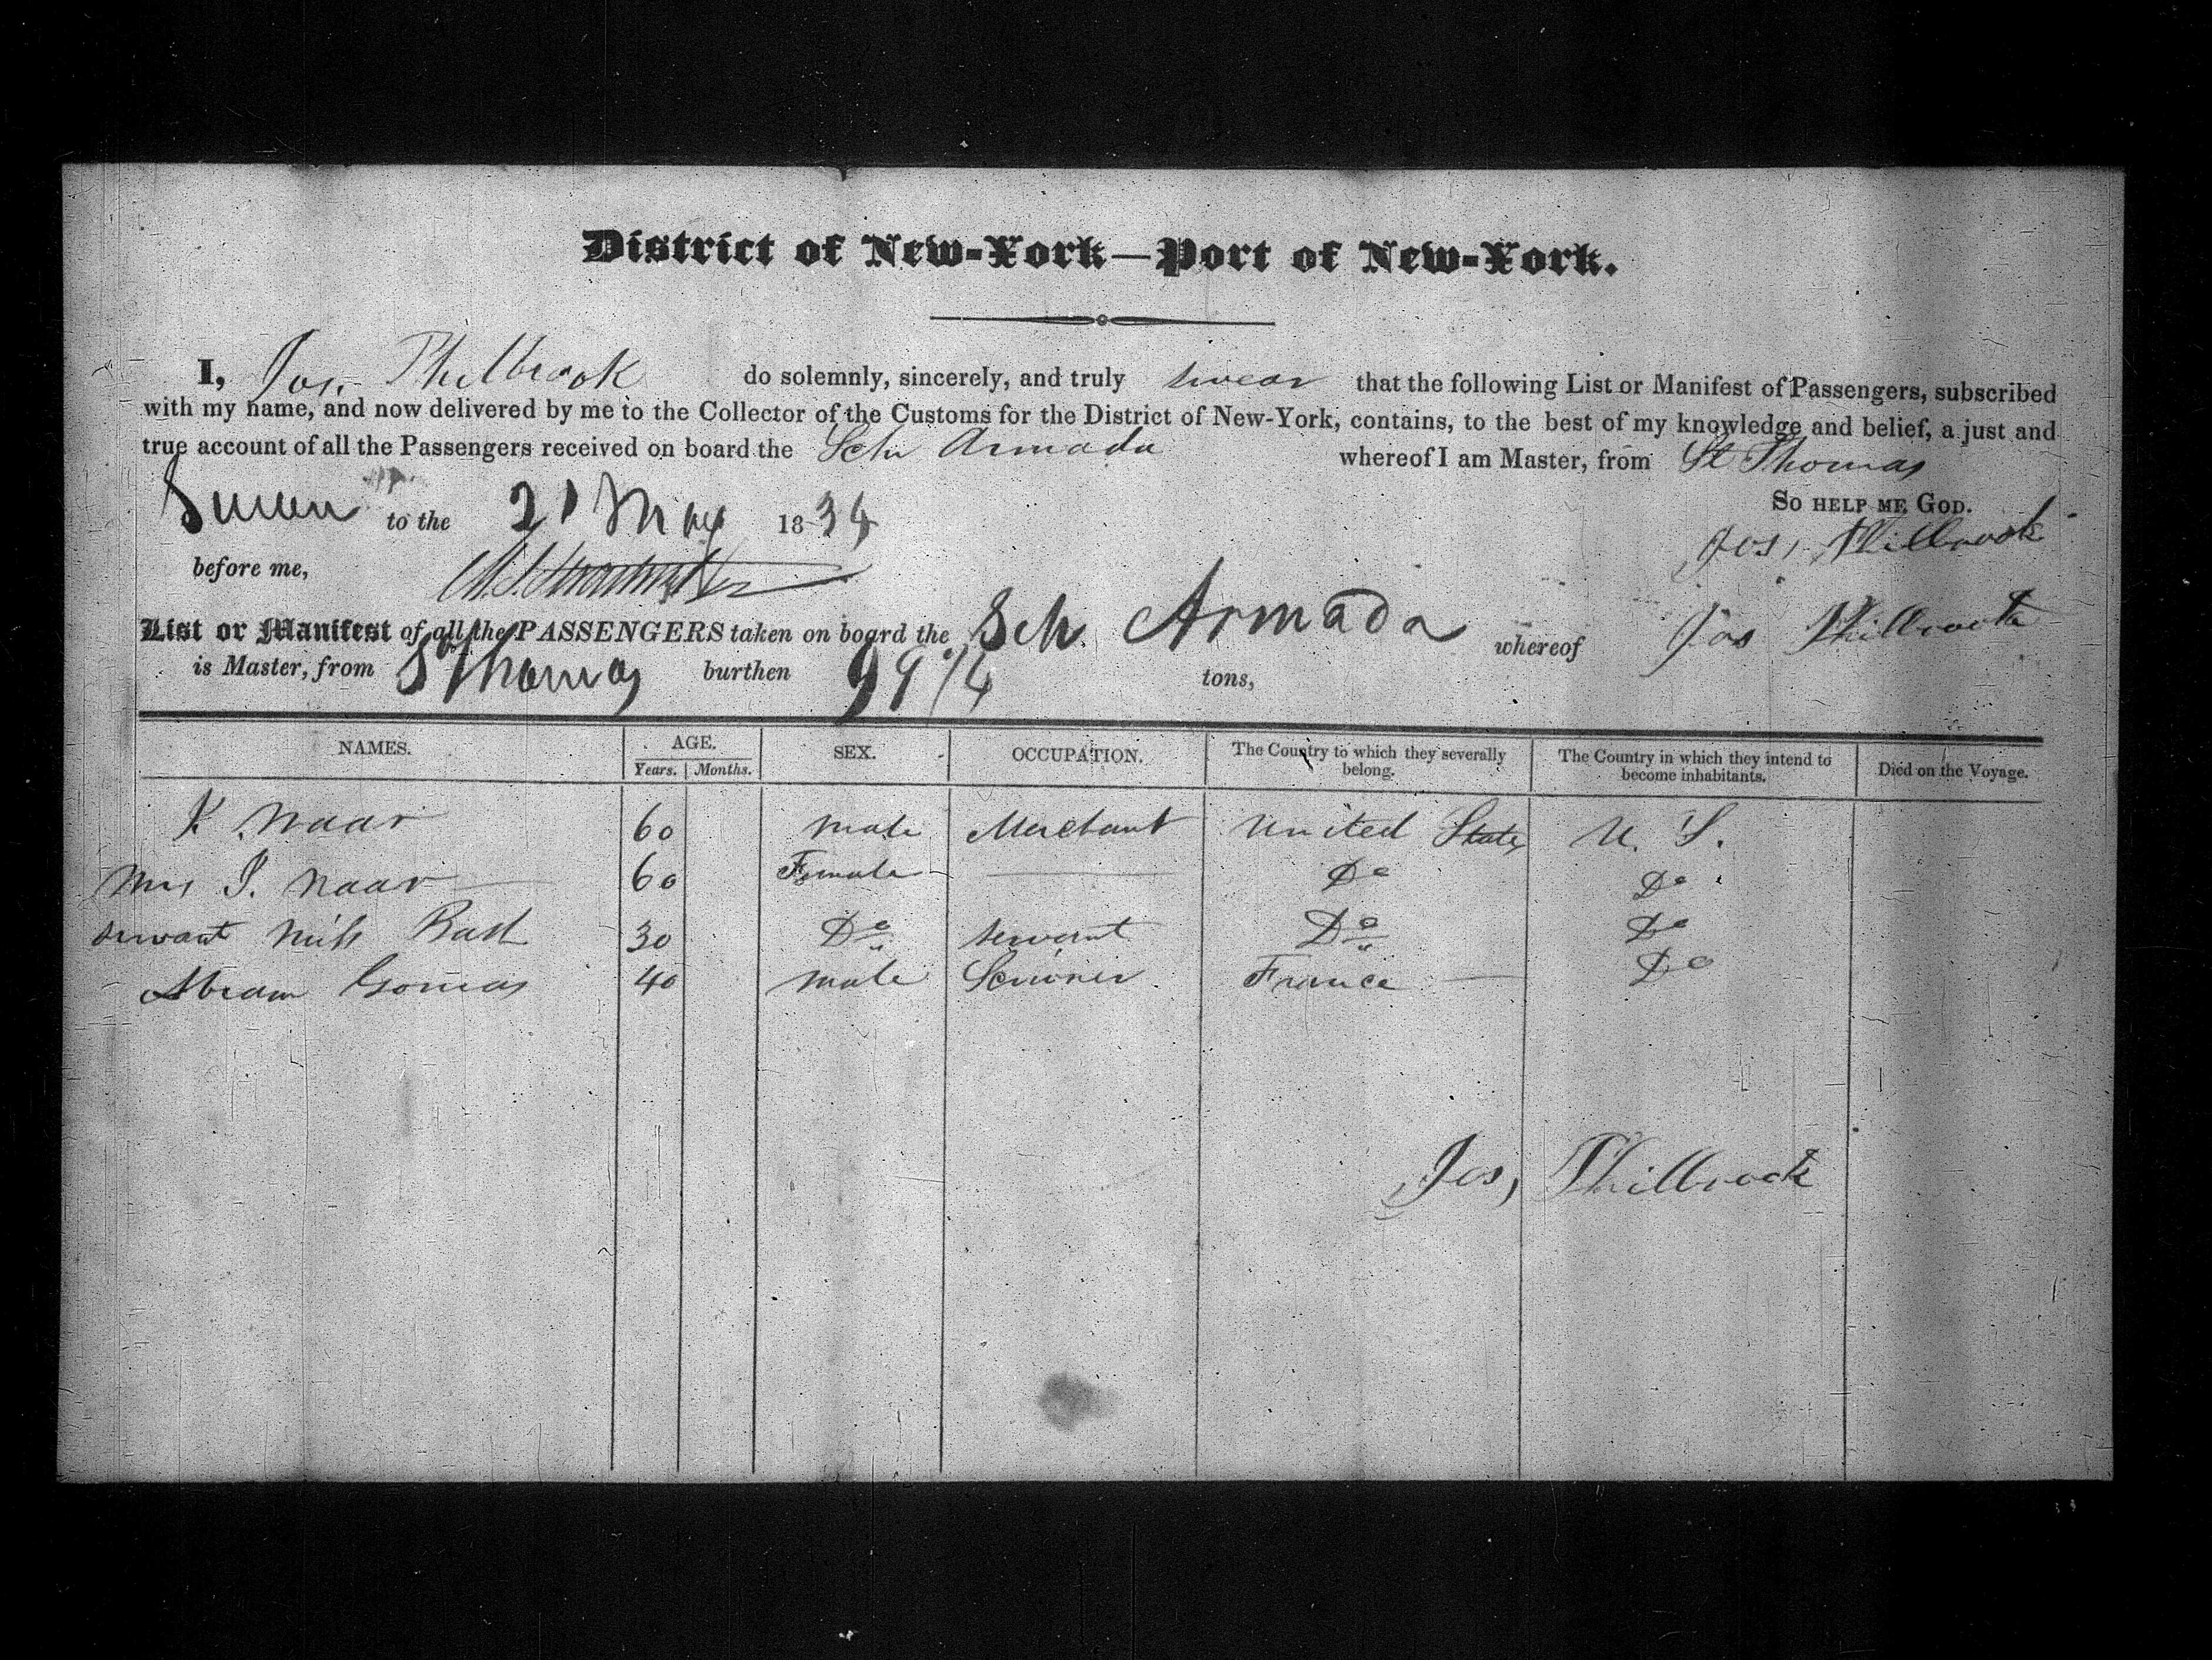 District of New-York—Port of New-York.
I, Jos. Philbrook do solemnly, sincerely, and truly swear that the following List or Manifest of Passengers, subscribed
with my name, and now delivered by me to the Collector of the Customs for the District of New-York, contains, to the best of my knowledge and belief, a just and
true account of all the Passengers received on board the Sch Armada whereof I am Master, from St Thomas
So HELP ME GOD.
Sworn to the 21 May 1834
Jos, Philbrook
before me,
List or Manifest of all the PASSENGERS taken on board the Sch Armada whereof Jos Philbrook
is Master, from St Thomas burthen 99 /4 tons,
NAMES. AGE. SEX. OCCUPATION. The Country to which they severally belong. The Country in which they intend to become inhabitants. Died on the Voyage.
Years. Months.
K Naar 60 male Merchant United States U. S.
Mrs J. Naar 60 Female Do Do
servant miss Bash 30 Do servant Do Do
Abram Gomas 40 male France Do
Jos, Philbrook